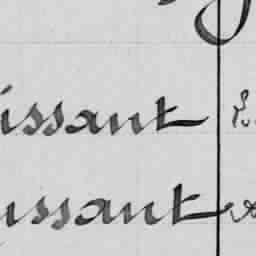 issant
ussant